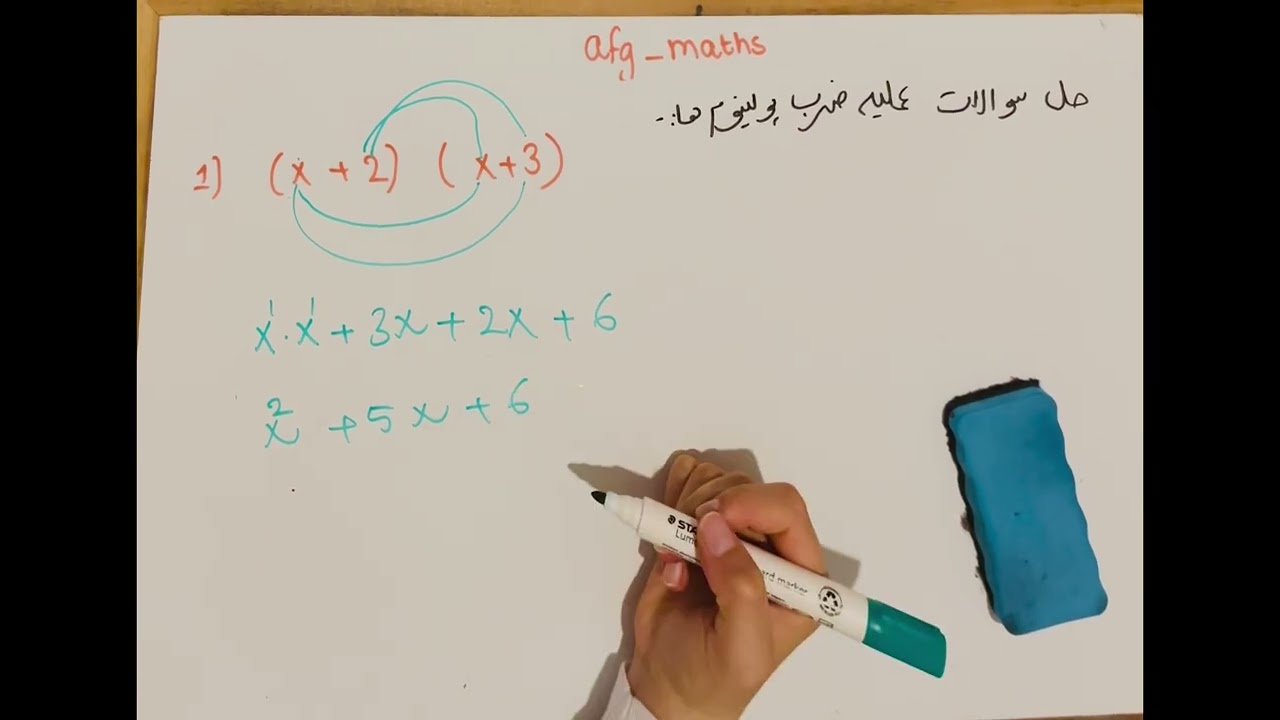 afg_maths
حل سوالات عملیه ضرب پولینوم ها:-
1) (x + 2) (x+3)
x¹·x¹ + 3x + 2x + 6
x² + 5x + 6
STA
Lum
ard marker